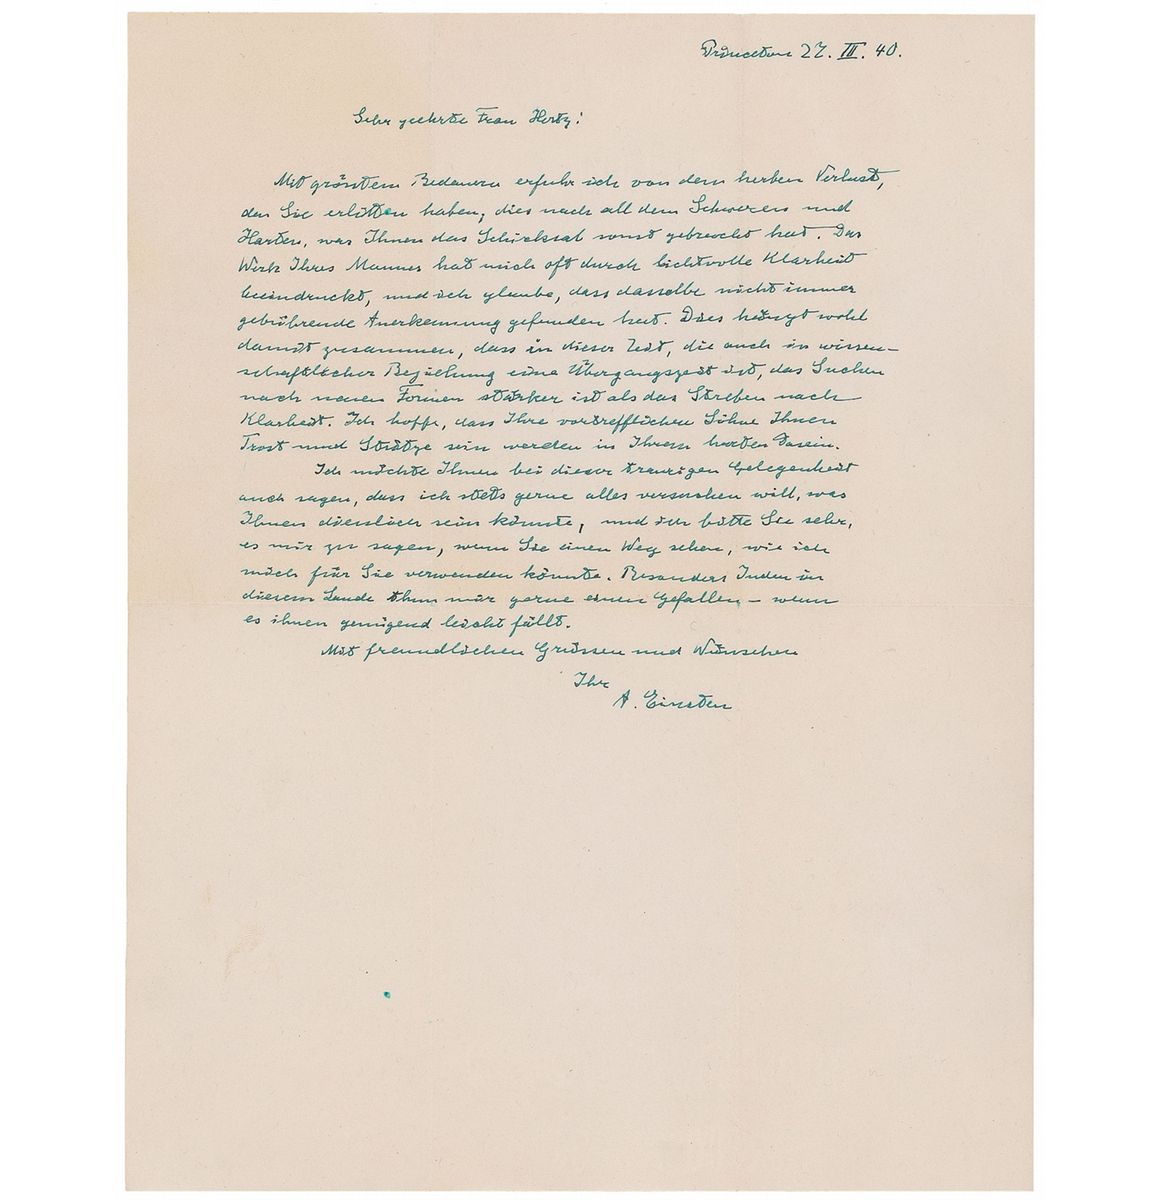 Princeton 27. III. 40.
Sehr geehrte Frau Hertz!
Mit grösstem Bedauern erfuhr ich von dem herben Verlust,
den Sie erlitten haben, dies nach all dem Schweren und
Harten, was Ihnen das Schicksal sonst gebracht hat. Das
Werk Ihres Mannes hat mich oft durch lichtvolle Klarheit
beeindruckt, und ich glaube, dass dasselbe nicht immer
gebührende Anerkennung gefunden hat. Dies hängt wohl
damit zusammen, dass in dieser Zeit, die auch in wissen-
schaftlicher Beziehung eine Übergangszeit ist, das Suchen
nach neuen Formen stärker ist als das Streben nach
Klarheit. Ich hoffe, dass Ihre vortrefflichen Söhne Ihnen
Trost und Stütze sein werden in Ihrem harten Dasein.
Ich möchte Ihnen bei dieser traurigen Gelegenheit
auch sagen, dass ich stets gerne alles versuchen will, was
Ihnen dienlich sein könnte, und ich bitte Sie sehr,
es mir zu sagen, wenn Sie einen Weg sehen, wie ich
mich für Sie verwenden könnte. Besonders Juden in
diesem Lande thun mir gerne einen Gefallen – wenn
es ihnen genügend leicht fällt.
Mit freundlichen Grüssen und Wünschen
Ihr
A. Einstein